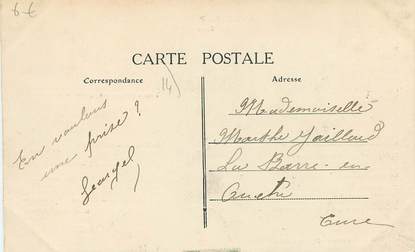 6 €
CARTE POSTALE
Correspondance
Adresse
14
En voulons
une prise ?
Mademoiselle
Marthe Gaillard
La Barre-en
Ouche
Eure